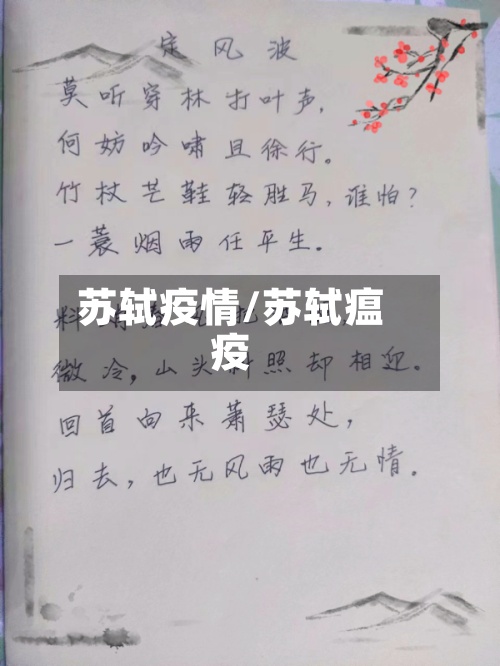 定风波
莫听穿林打叶声,
何妨吟啸且徐行。
竹杖芒鞋轻胜马,谁怕?
一蓑烟雨任平生。
苏轼疫情/苏轼瘟
疫
料
微冷,山头斜照却相迎。
回首向来萧瑟处,
归去,也无风雨也无情。